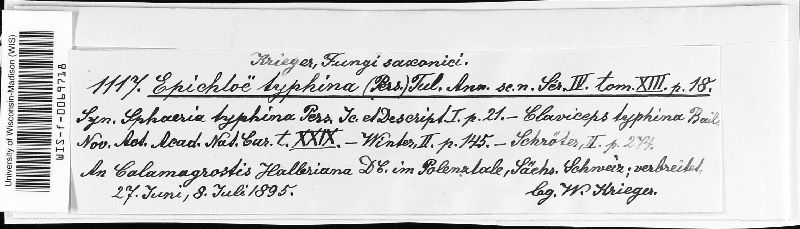 University of Wisconsin-Madison (WIS)
WIS-f-0069718
Krieger, Fungi saxonici.
1117. Epichloë typhina (Pers.) Tul. Ann. sc. n. Sér. IV. tom. XIII. p. 18.
Syn. Sphaeria typhina Pers. Ic. et Descript. I. p. 21. – Claviceps typhina Bail.
Nov. Act. Acad. Nat. Cur. t. XXIX. – Winter, II. p. 145. – Schröter, II. p. 274.
An Calamagrostis Halleriana DC. im Polenztale, Sächs. Schweiz; verbreitet.
27. Juni, 8. Juli 1895. lg. W. Krieger.